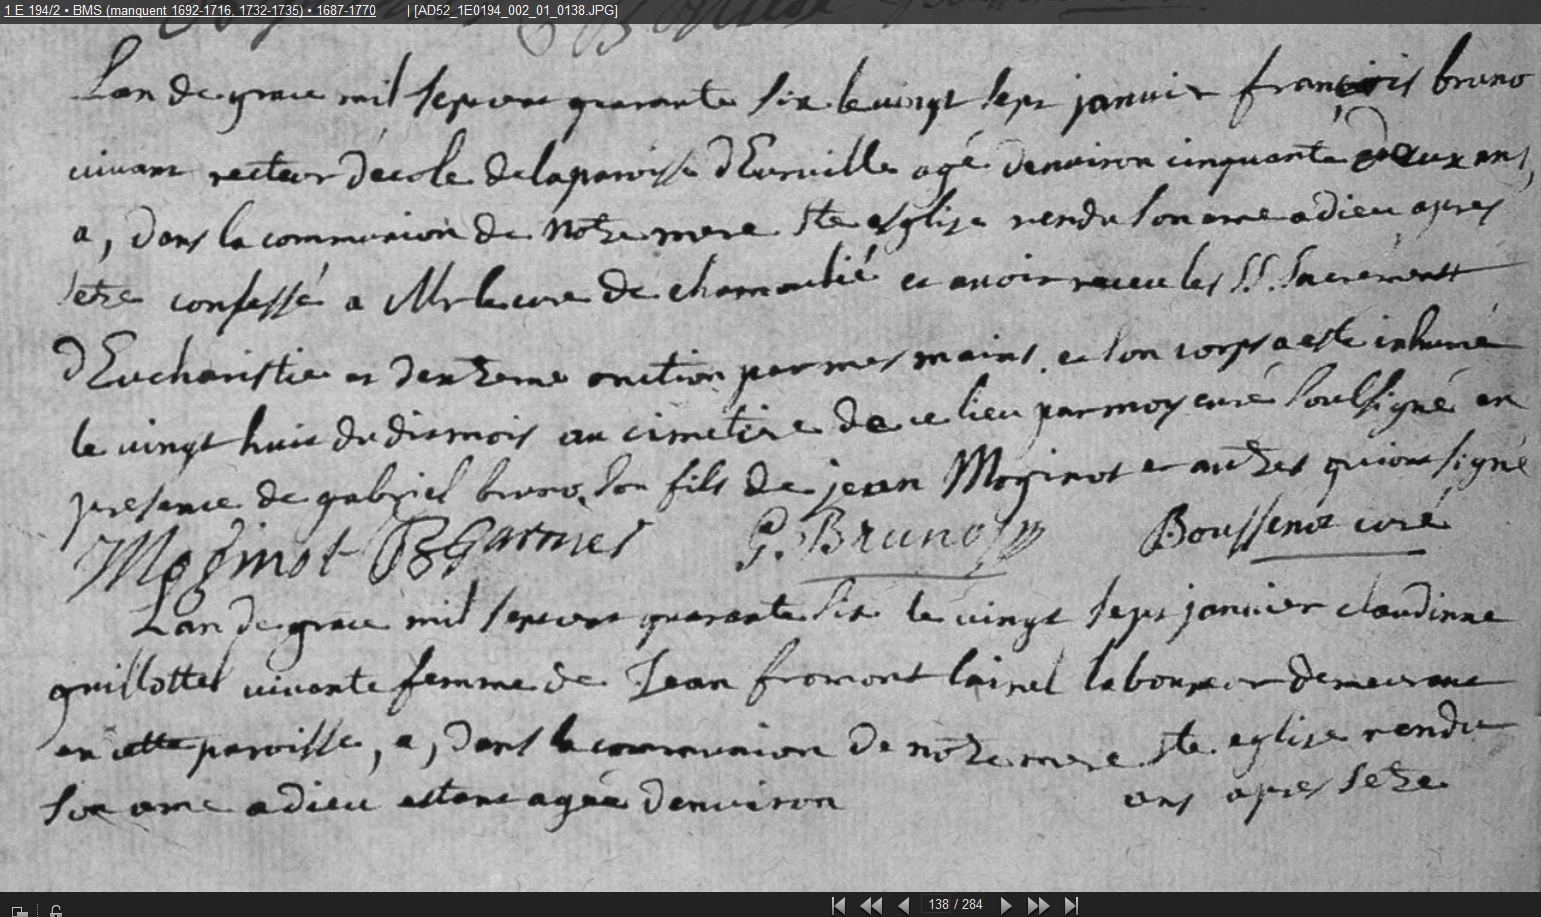 1 E 194/2 • BMS (manquent 1692-1716, 1732-1735) • 1687-1770 | [AD52_1E0194_002_01_0138.JPG]
Lan de grace mil sept cent quarante six le vingt sept janvier françois bruno
vivant recteur décole de la paroisse d'Eurville agé denviron cinquante deux ans,
a, dans la communion de notre mere Ste esglise rendu son ame a dieu apres
setre confessé a Mr le curé de chamouilié et avoir receu les S.S. Sacrements
d'Eucharistie et dextreme onction par mes mains et son corps a esté inhumé
le vingt huit du dis mois au cimetire de ce lieu par moy curé soussigné en
presence de gabriel bruno son fils de jean Moginot et autres qui ont signé
Moginot Garnier G. Bruno Boussenot curé
Lan de grace mil sept cent quarante six le vingt sept janvier claudinne
guillottel vivante femme de Jean fromont lainel laboureur demeurant
en cette paroisse, a, dans la communion de notre mere ste eglise rendu
son ame a dieu estant agée denviron ans apres setre
138 / 284